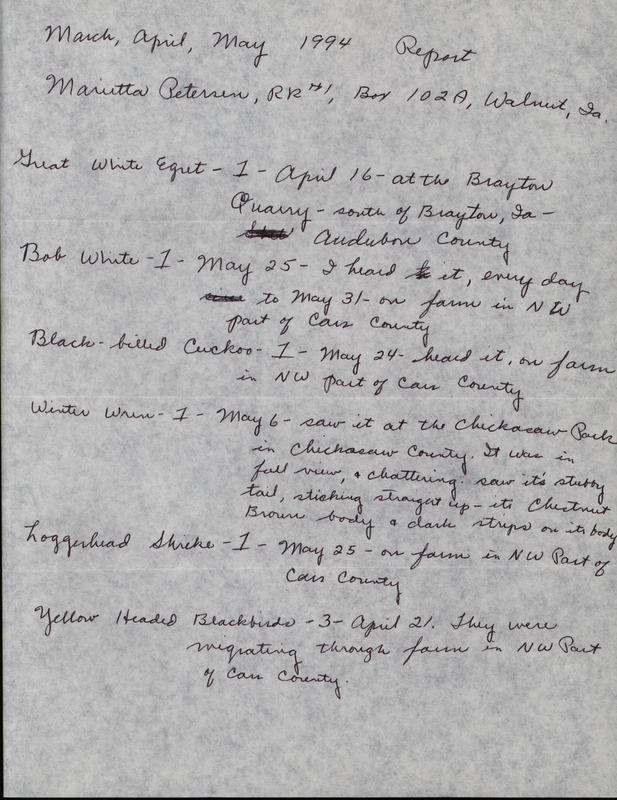 March, April, May 1994 Report
Marietta Petersen, RR #1, Box 102A, Walnut, Ia.
Great White Egret - 1 - April 16 - at the Brayton
Quarry - south of Brayton, Ia -
Audubon County
Bob White - 1 - May 25 - I heard it, every day
to May 31 - on farm in NW
part of Cass County
Black-billed Cuckoo - 1 - May 24 - heard it, on farm
in NW part of Cass County
Winter Wren - 1 - May 6 - saw it at the Chickasaw Park
in Chickasaw County. It was in
full view, & chattering. saw it's stubby
tail, sticking straight up - its Chestnut
Brown body & dark strips on its body
Loggerhead Shrike - 1 - May 25 - on farm in NW Part of
Cass County
Yellow Headed Blackbirds - 3 - April 21. They were
migrating through farm in NW Part
of Cass County.